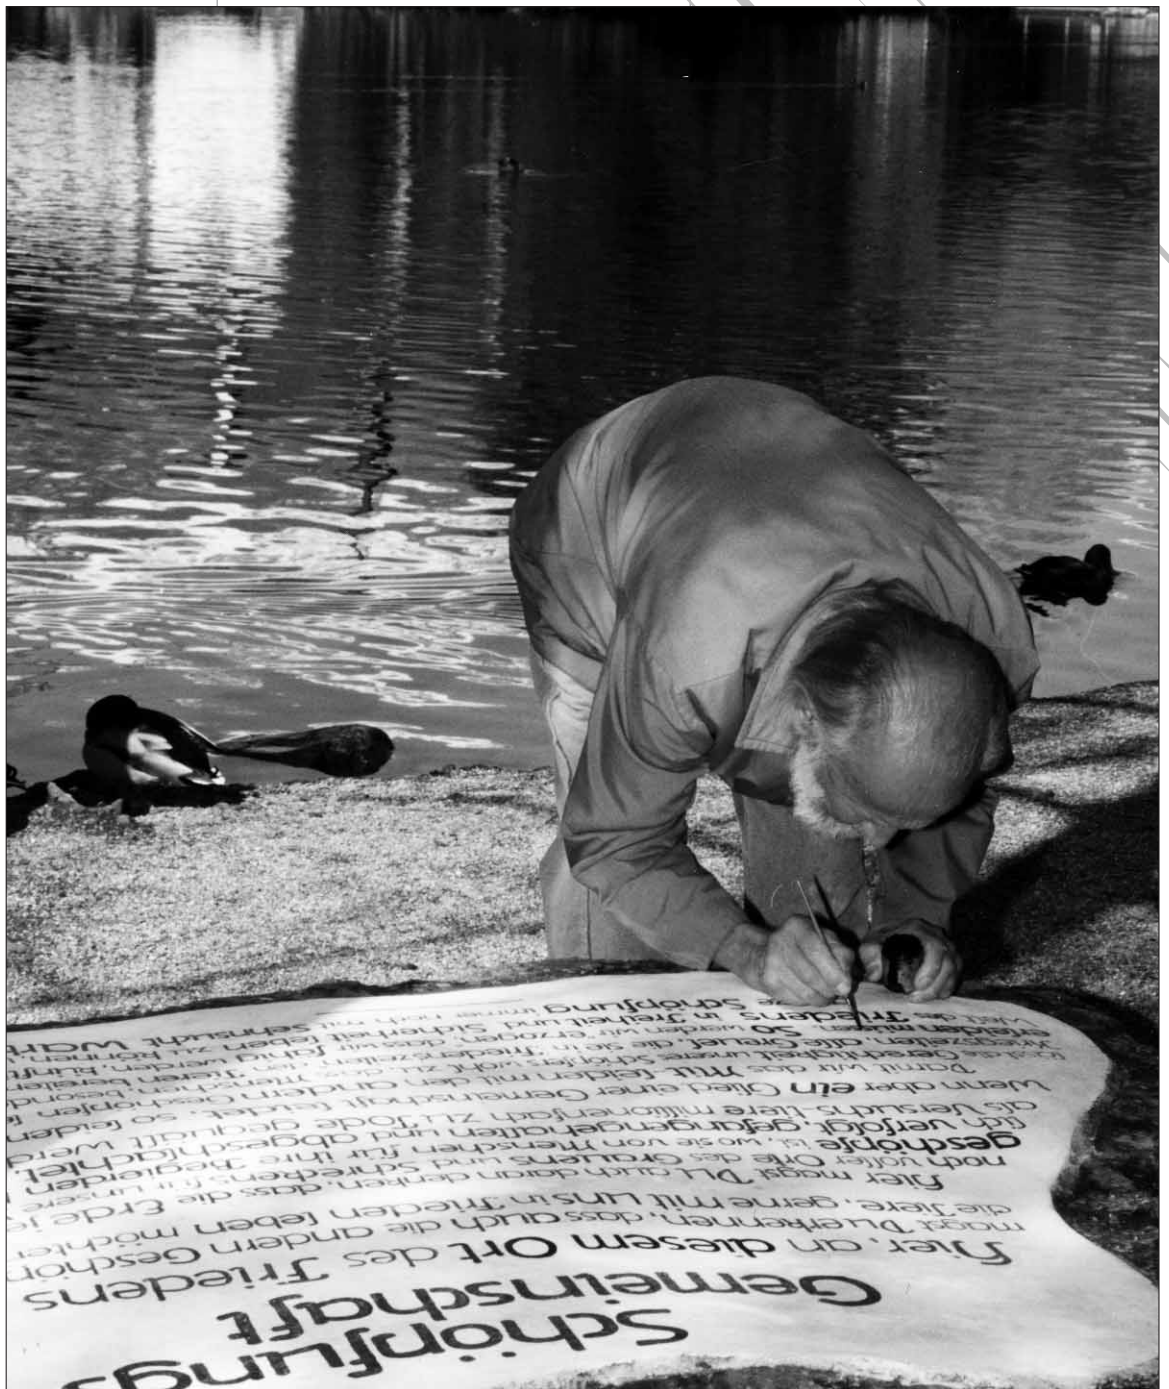 Schöpfungs
Gemeinschaft
Hier, an diesem Ort des Friedens
magst Du erkennen, dass auch die andern
die Tiere, gerne mit uns in Frieden leben möchten
Hier magst Du auch daran denken, dass die Erde
noch voller Orte des Grauens und Schreckens für unsere
geschöpfe ist, wo sie von Menschen für ihre Begierden
sich verfolgt, gefangengehalten und abgeschlachtet,
als Versuchs-tiere millionenfach zu Tode gequält
Wenn aber ein Glied einer Gemeinschaft leidet, so leiden
Damit wir das Mit leiden mit den andern Geschöpfen
die Gerechtigkeit unsere Schöpfers wohl zu Menschen
Kriegszeiten, alle Greuel, die sie in Friedenszeiten den Tieren bereiten
erleiden müssen. So werden wir erzogen, dass wir fähig werden,
Welt des Friedens in Freiheit und Sicherheit leben zu können,
Schöpfung immer noch mit Sehnsucht